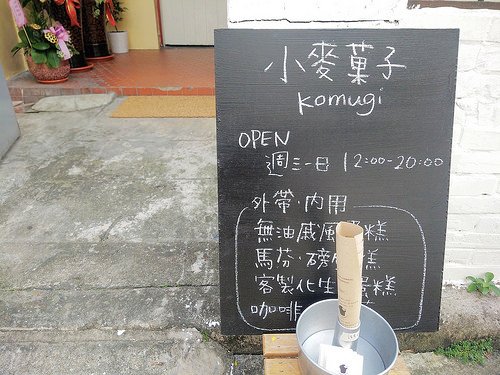 小麥菓子
komugi
OPEN
週三-日 12:00-20:00
外帶・內用
無油戚風蛋糕
馬芬・磅 糕
客製化生 蛋糕
咖啡